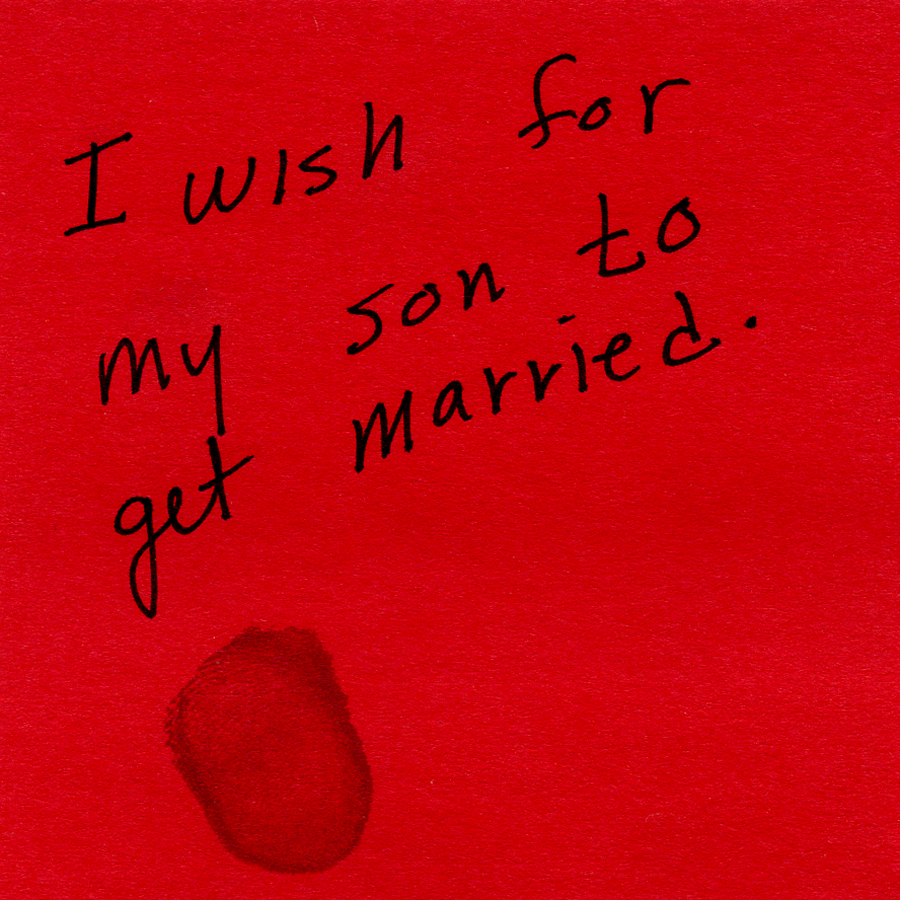 I wish for
my son to
get married.